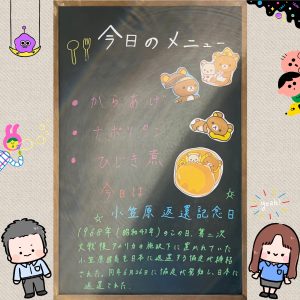 今日のメニュー
• からあげ
• ナポリタン
• ひじき煮
今日は
小笠原返還記念日
1968年(昭和43年)のこの日、第二次
大戦後アメリカの施政下に置かれていた
小笠原諸島を日本に返還する協定が締結
された。同年6月26日に協定が発効し、日本に
返還された。
yeah!